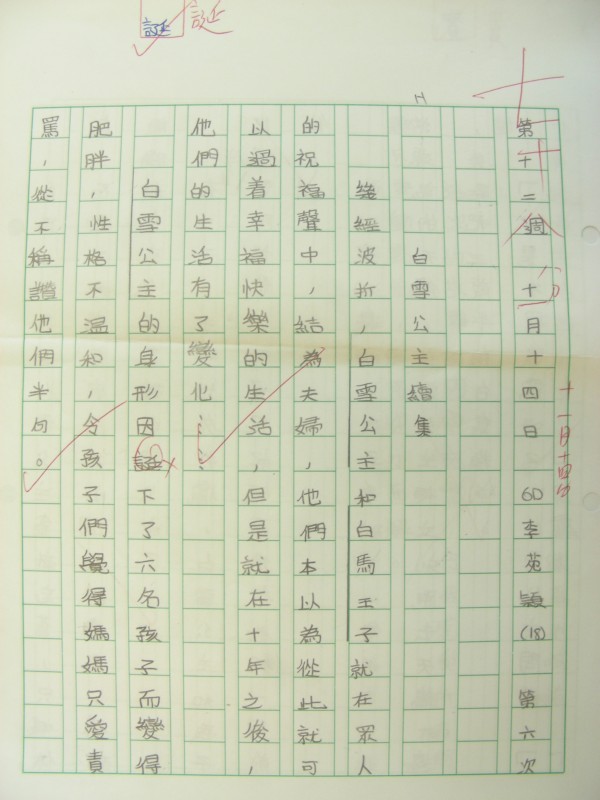 誕 誕
第十二週 十月十四日 6D 李苑穎(18) 第六次
十一月十四日
白雪公主續集
幾經波折，白雪公主和白馬王子就在眾人
的祝福聲中，結為夫婦，他們本以為從此就可
以過着幸福快樂的生活，但是就在十年之後，
他們的生活有了變化……
白雪公主的身形因誕下了六名孩子而變得
肥胖，性格不溫和，令孩子們覺得媽媽只愛責
罵，從不稱讚他們半句。